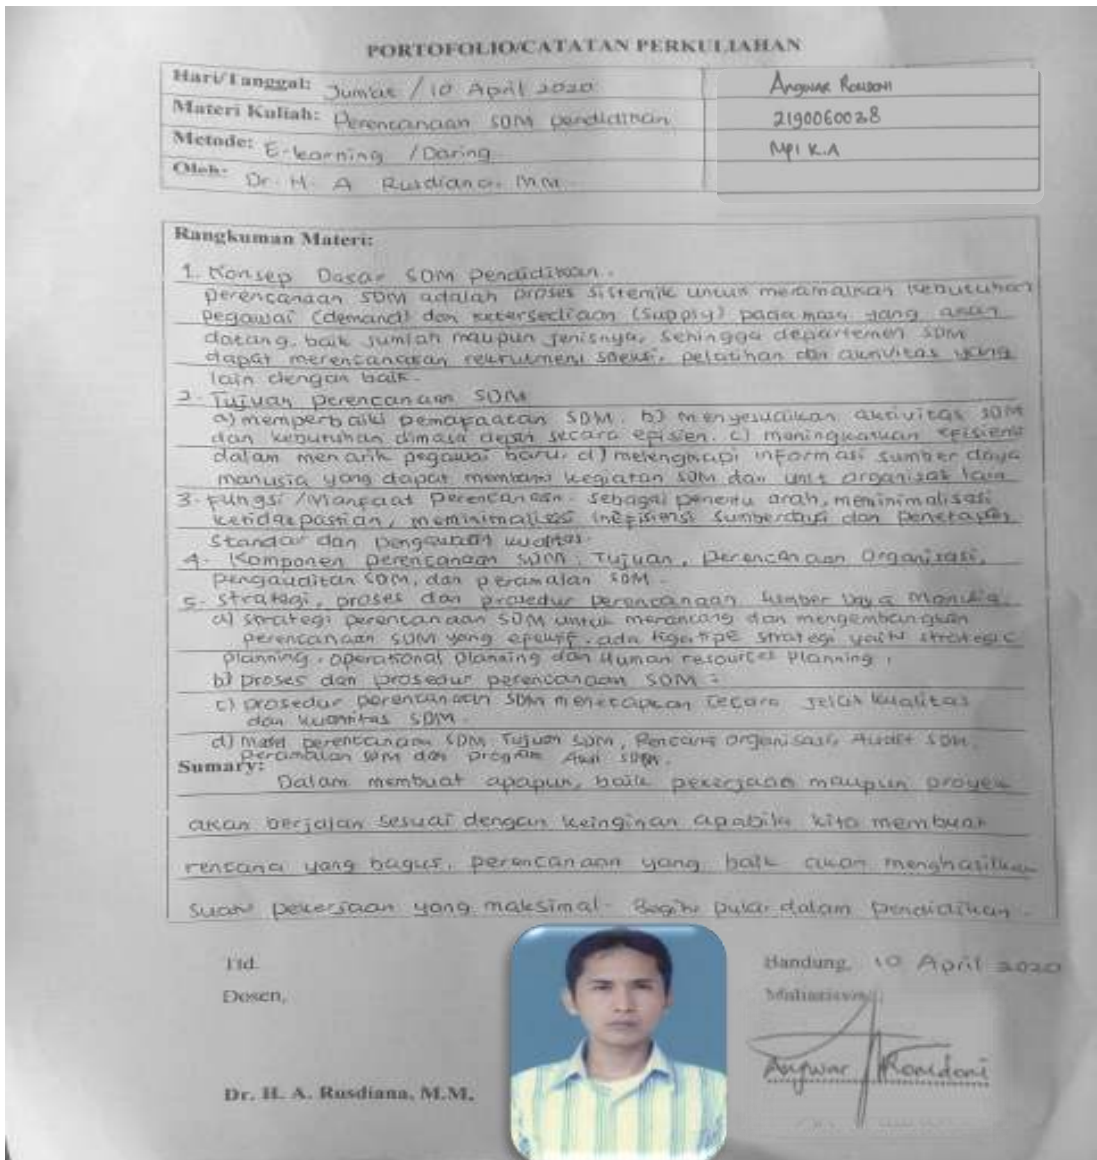 PORTOFOLIO/CATATAN PERKULIAHAN
Hari/Tanggal: Jumat / 10 April 2020
Angwar Romdoni
Materi Kuliah: Perencanaan SDM pendidikan
2190060028
Metode: E-learning / Daring
MPI K.A
Oleh: Dr. H. A Rusdiana, MM
Rangkuman Materi:
1. Konsep Dasar SDM pendidikan.
perencanaan SDM adalah proses sistemik untuk meramalkan kebutuhan
pegawai (demand) dan ketersediaan (supply) pada masa yang akan
datang, baik jumlah maupun jenisnya, sehingga departemen SDM
dapat merencanakan rekrutmen, seleksi, pelatihan dan aktivitas yang
lain dengan baik.
2. Tujuan perencanaan SDM
a) memperbaiki pemanfaatan SDM. b) menyesuaikan aktivitas SDM
dan kebutuhan dimasa depan secara episien. c) meningkatkan episiensi
dalam menarik pegawai baru. d) melengkapi informasi sumber daya
manusia yang dapat membantu kegiatan SDM dan unit organisasi lain
3. Fungsi / Manfaat perencanaan. sebagai penentu arah, meminimalisasi
ketidakpastian, meminimalisasi inepisiensi sumberdaya dan penetapan
standar dan pengawasan kualitas.
4. Komponen perencanaan SDM: Tujuan, perencanaan organisasi,
pengauditan SDM, dan peramalan SDM.
5. strategi, proses dan prosedur perencanaan sumber Daya Manusia
a) strategi perencanaan SDM untuk merancang dan mengembangkan
perencanaan SDM yang epektif. ada tiga tipe strategi yaitu strategic
planning, operational planning dan Human resources planning.
b) proses dan prosedur perencanaan SDM:
c) prosedur perencanaan SDM menetapkan secara jelas kualitas
dan kuantitas SDM.
d) Model perencanaan SDM, Tujuan SDM, Rencana organisasi, Audit SDM,
peramalan SDM dan program Aksi SDM.
Sumary:
Dalam membuat apapun, baik pekerjaan maupun proyek
akan berjalan sesuai dengan keinginan apabila kita membuat
rencana yang bagus. perencanaan yang baik akan menghasilkan
suatu pekerjaan yang maksimal. Begitu pula dalam pendidikan.
Ttd.
Bandung, 10 April 2020
Dosen,
Mahasiswa,
Angwar Romdoni
Dr. H. A. Rusdiana, M.M.